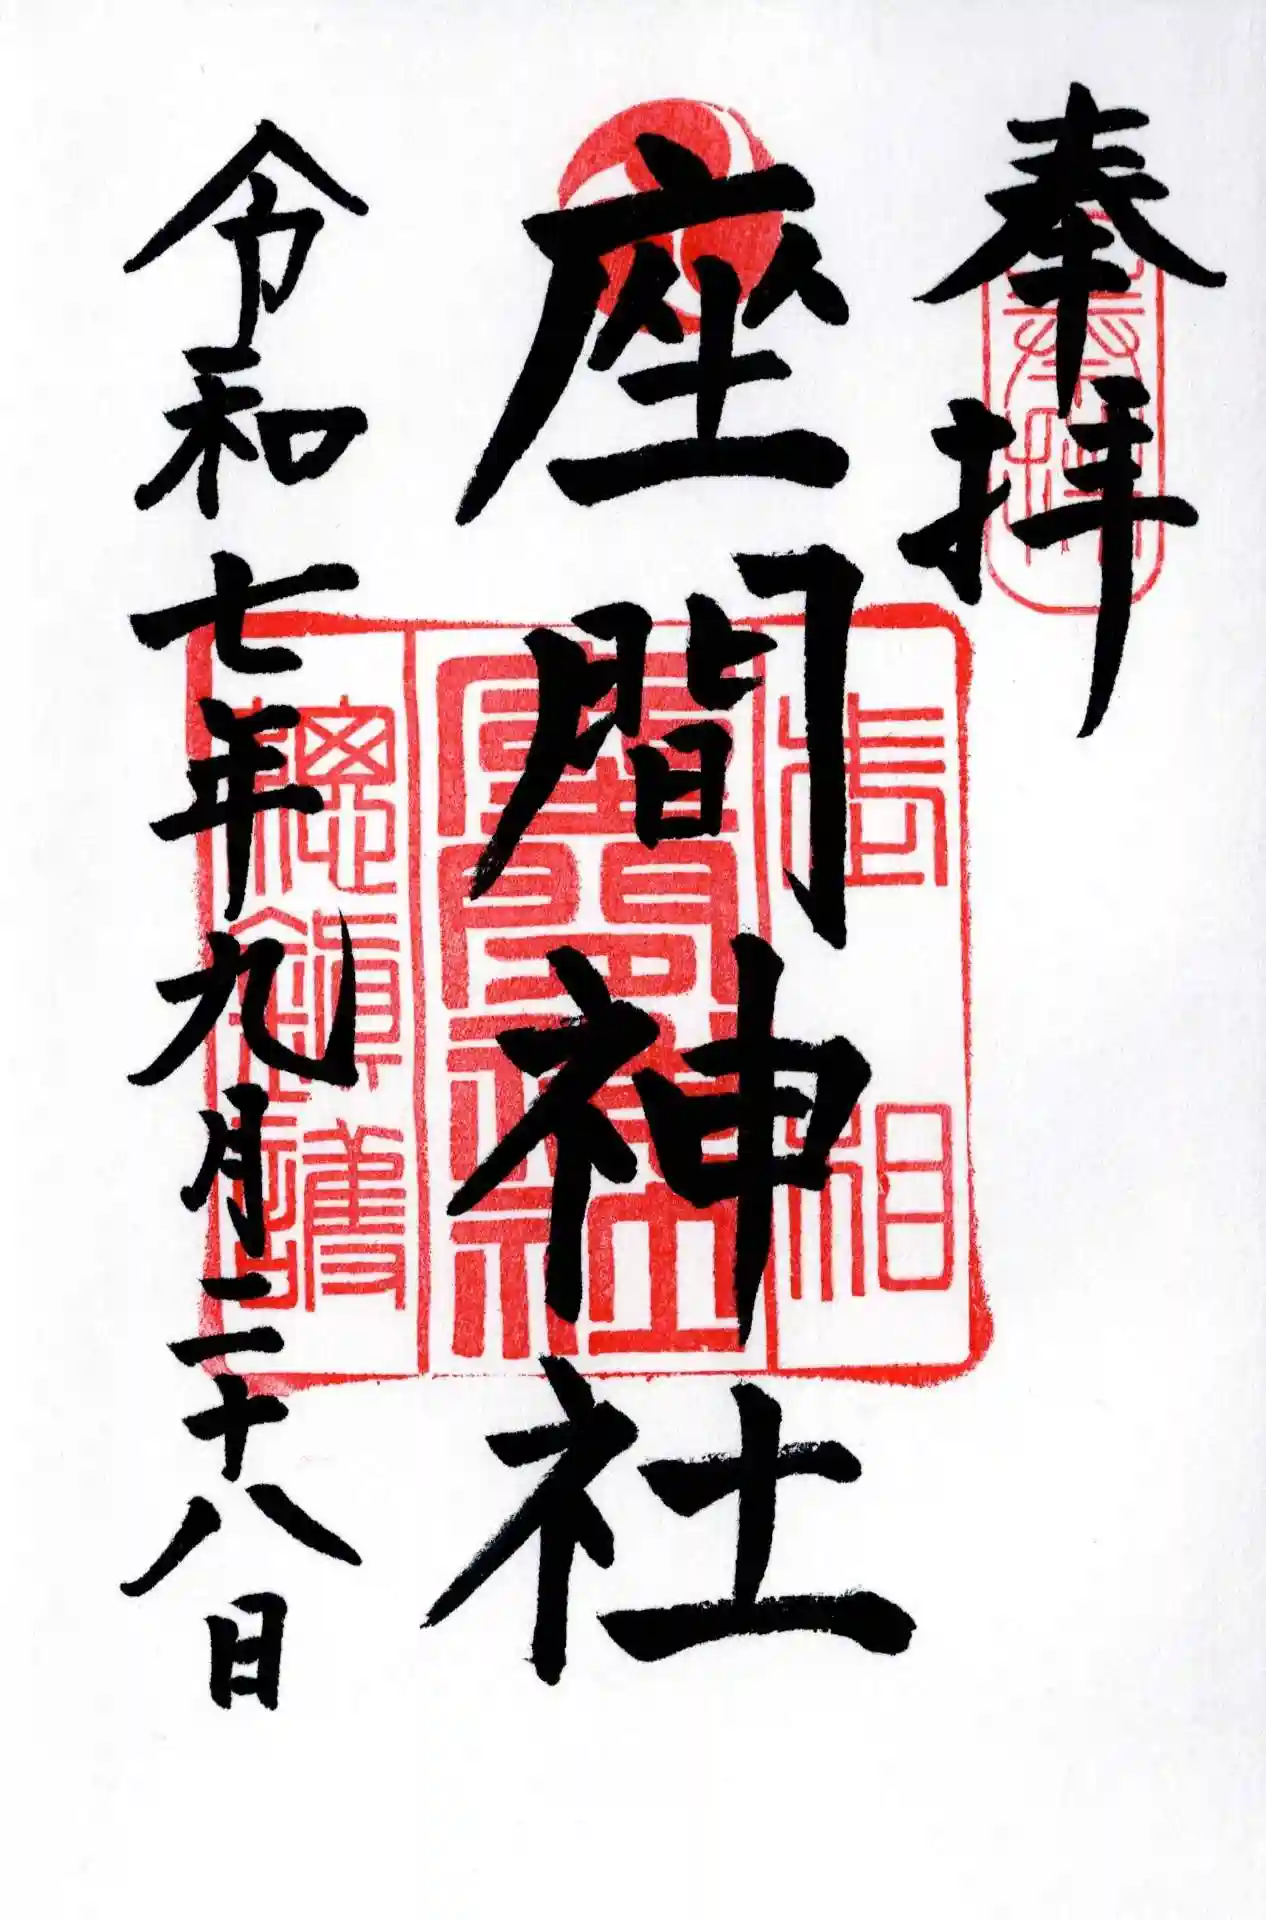 奉拝
奉拝
座間神社
武相
座間神社
總鎮護
令和七年九月二十八日